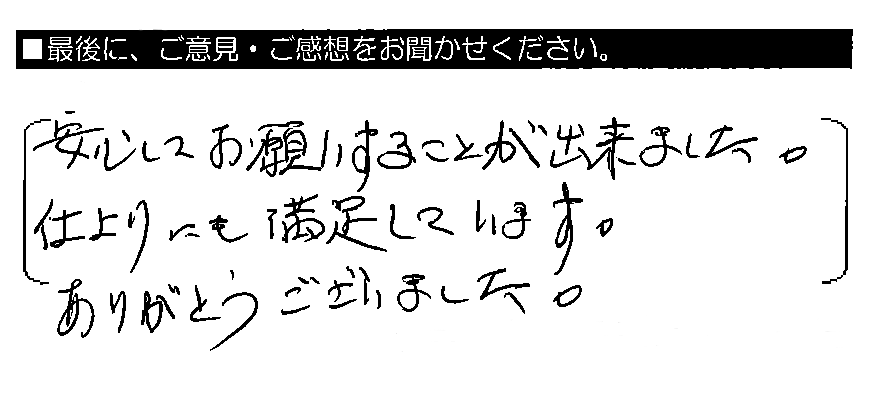 ■最後に、ご意見・ご感想をお聞かせください。
安心してお願いすることが出来ました。
仕上りにも満足しています。
ありがとうございました。